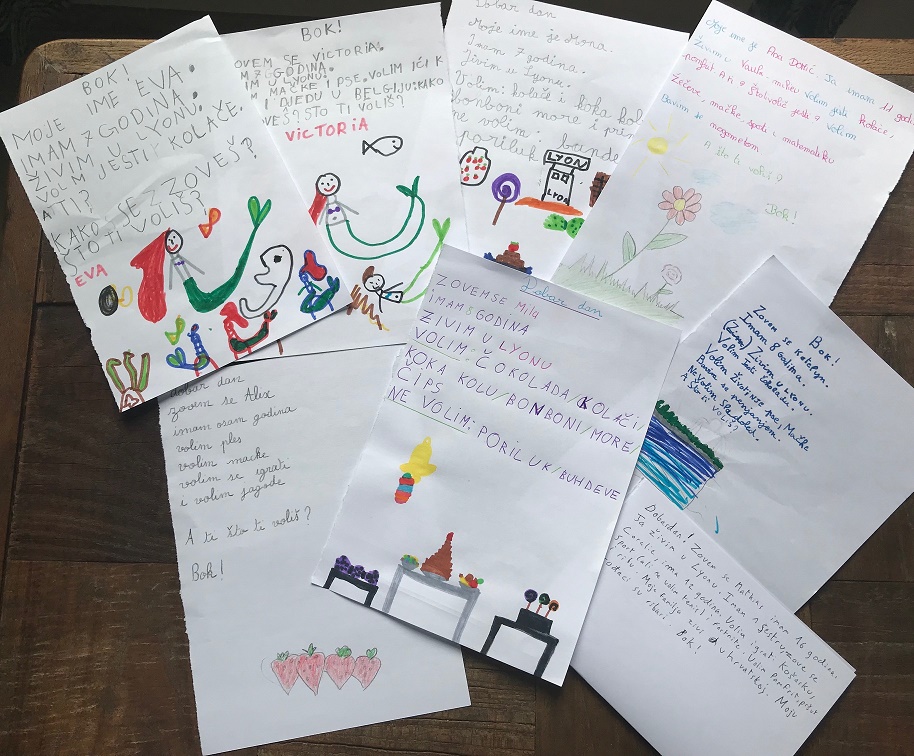 BOK!
MOJE IME EVA.
IMAM 7 GODINA.
ŽIVIM U LYONU.
VOLM JESTI KOLAČE.
A TI?
KAKO JE ZOVEŠ?
ŠTO TI VOLIŠ?
EVA
BOK!
OVEM SE VICTORIA.
M 7 GODINA.
M LYONU.
IM MAČKE I PSE. VOLIM IĆI K
I DJEDU U BELGIJU. KAKO
VEŠ? ŠTO TI VOLIŠ?
VICTORIA
Dobar dan
Može ime je Mona.
Imam 7 godina.
Živim u Lyone.
Volim: kolači i koka kol
bonboni more i pri
ne volim:
poriluk bunde
LYON
LYON
Moje ime je Ana Dotlić. Ja imam 11 god
Živim u
Zečeve, mačke, spati i matematiku
Bavim se nogometom
A što ti
voliš?
Bok!
Dobar dan
ZOVEMSE Mila
IMAM 8 GODINA
ŽIVIM U LYONU
VOLIM: ČOKOLADA/KOLAČI/
KOKA KOLU/BONBONI/MORE/
ČIPS
NE VOLIM: PORILUK/BUHDEVE
Bok!
Zovem se Katelyn.
Imam 8 godina.
(Živim) Živim u LYONU.
Volim Jesti čokoladu.
Volim životinje pse, Mačke
Bavim se
Ne Volim Sladoled.
A Što ti voliš?
dobar dan
zovem se Alex
imam osam godina
volim ples
volim macke
volim se igrati
i volim jagode
A ti što ti voliš?
Bok!
Dobardan! Zovem se Mathias imam 16 godina.
Ja živim u Lyonu. Imam sestru zove se
Coralie, ima 12 godina. Volim igrat Košarku,
sport
Moja familija živi u hrvatskoj. Moju
su ribari. Bok!